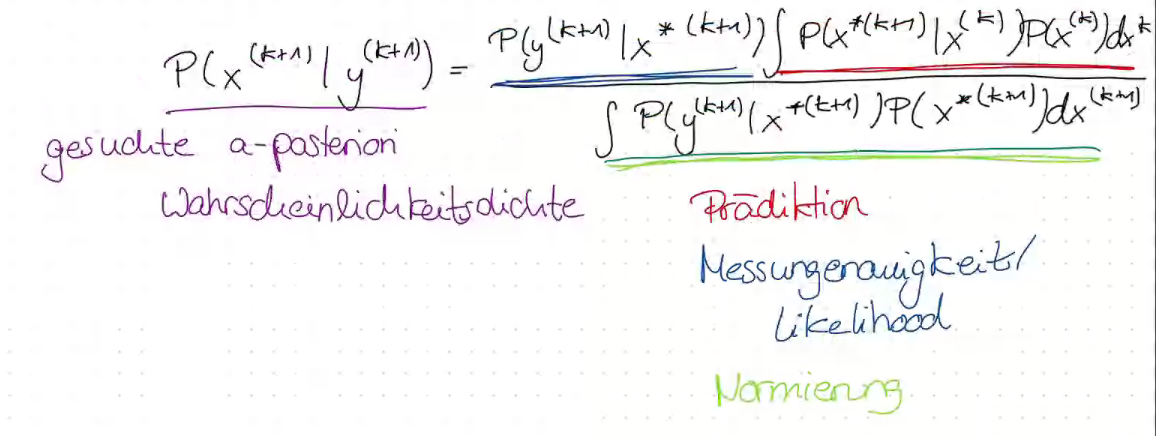 P(x^(k+1) | y^(k+1)) = P(y^(k+1) | x*^(k+1)) ∫ P(x*^(k+1) | x^(k)) P(x^(k)) dx^k / ∫ P(y^(k+1) | x*^(k+1)) P(x*^(k+1)) dx^(k+1)
gesuchte a-posteriori
Wahrscheinlichkeitsdichte
Prädiktion
Messungenauigkeit/
Likelihood
Normierung